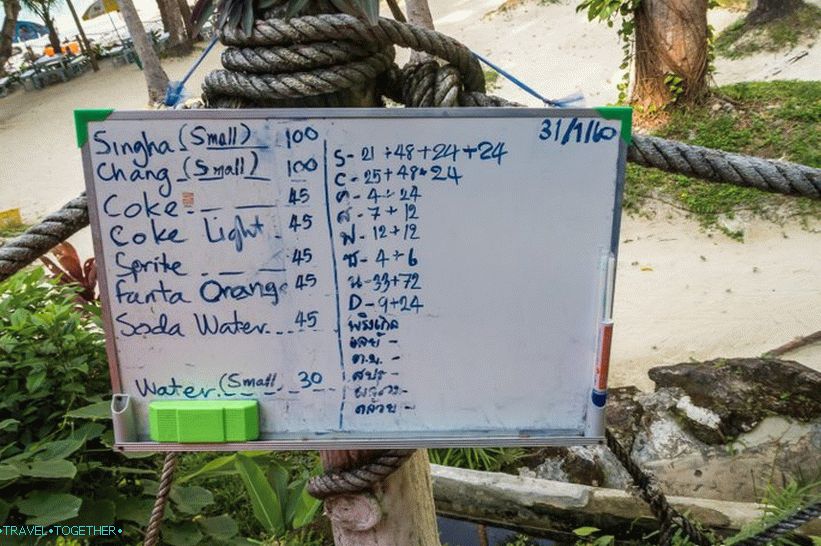 31/1/60
Singha (Small) 100
Chang (Small) 100
Coke 45
Coke Light 45
Sprite 45
Fanta Orange 45
Soda Water 45
Water (Small) 30
S - 21 + 48 + 24 + 24
C - 25 + 48 + 24
ค - 4 + 24
ส - 7 + 12
ฟ - 12 + 12
ช - 4 + 6
น - 33 + 72
D - 9 + 24
พริงเกิล
เลย์ -
•TRAVEL•TOGETHER•